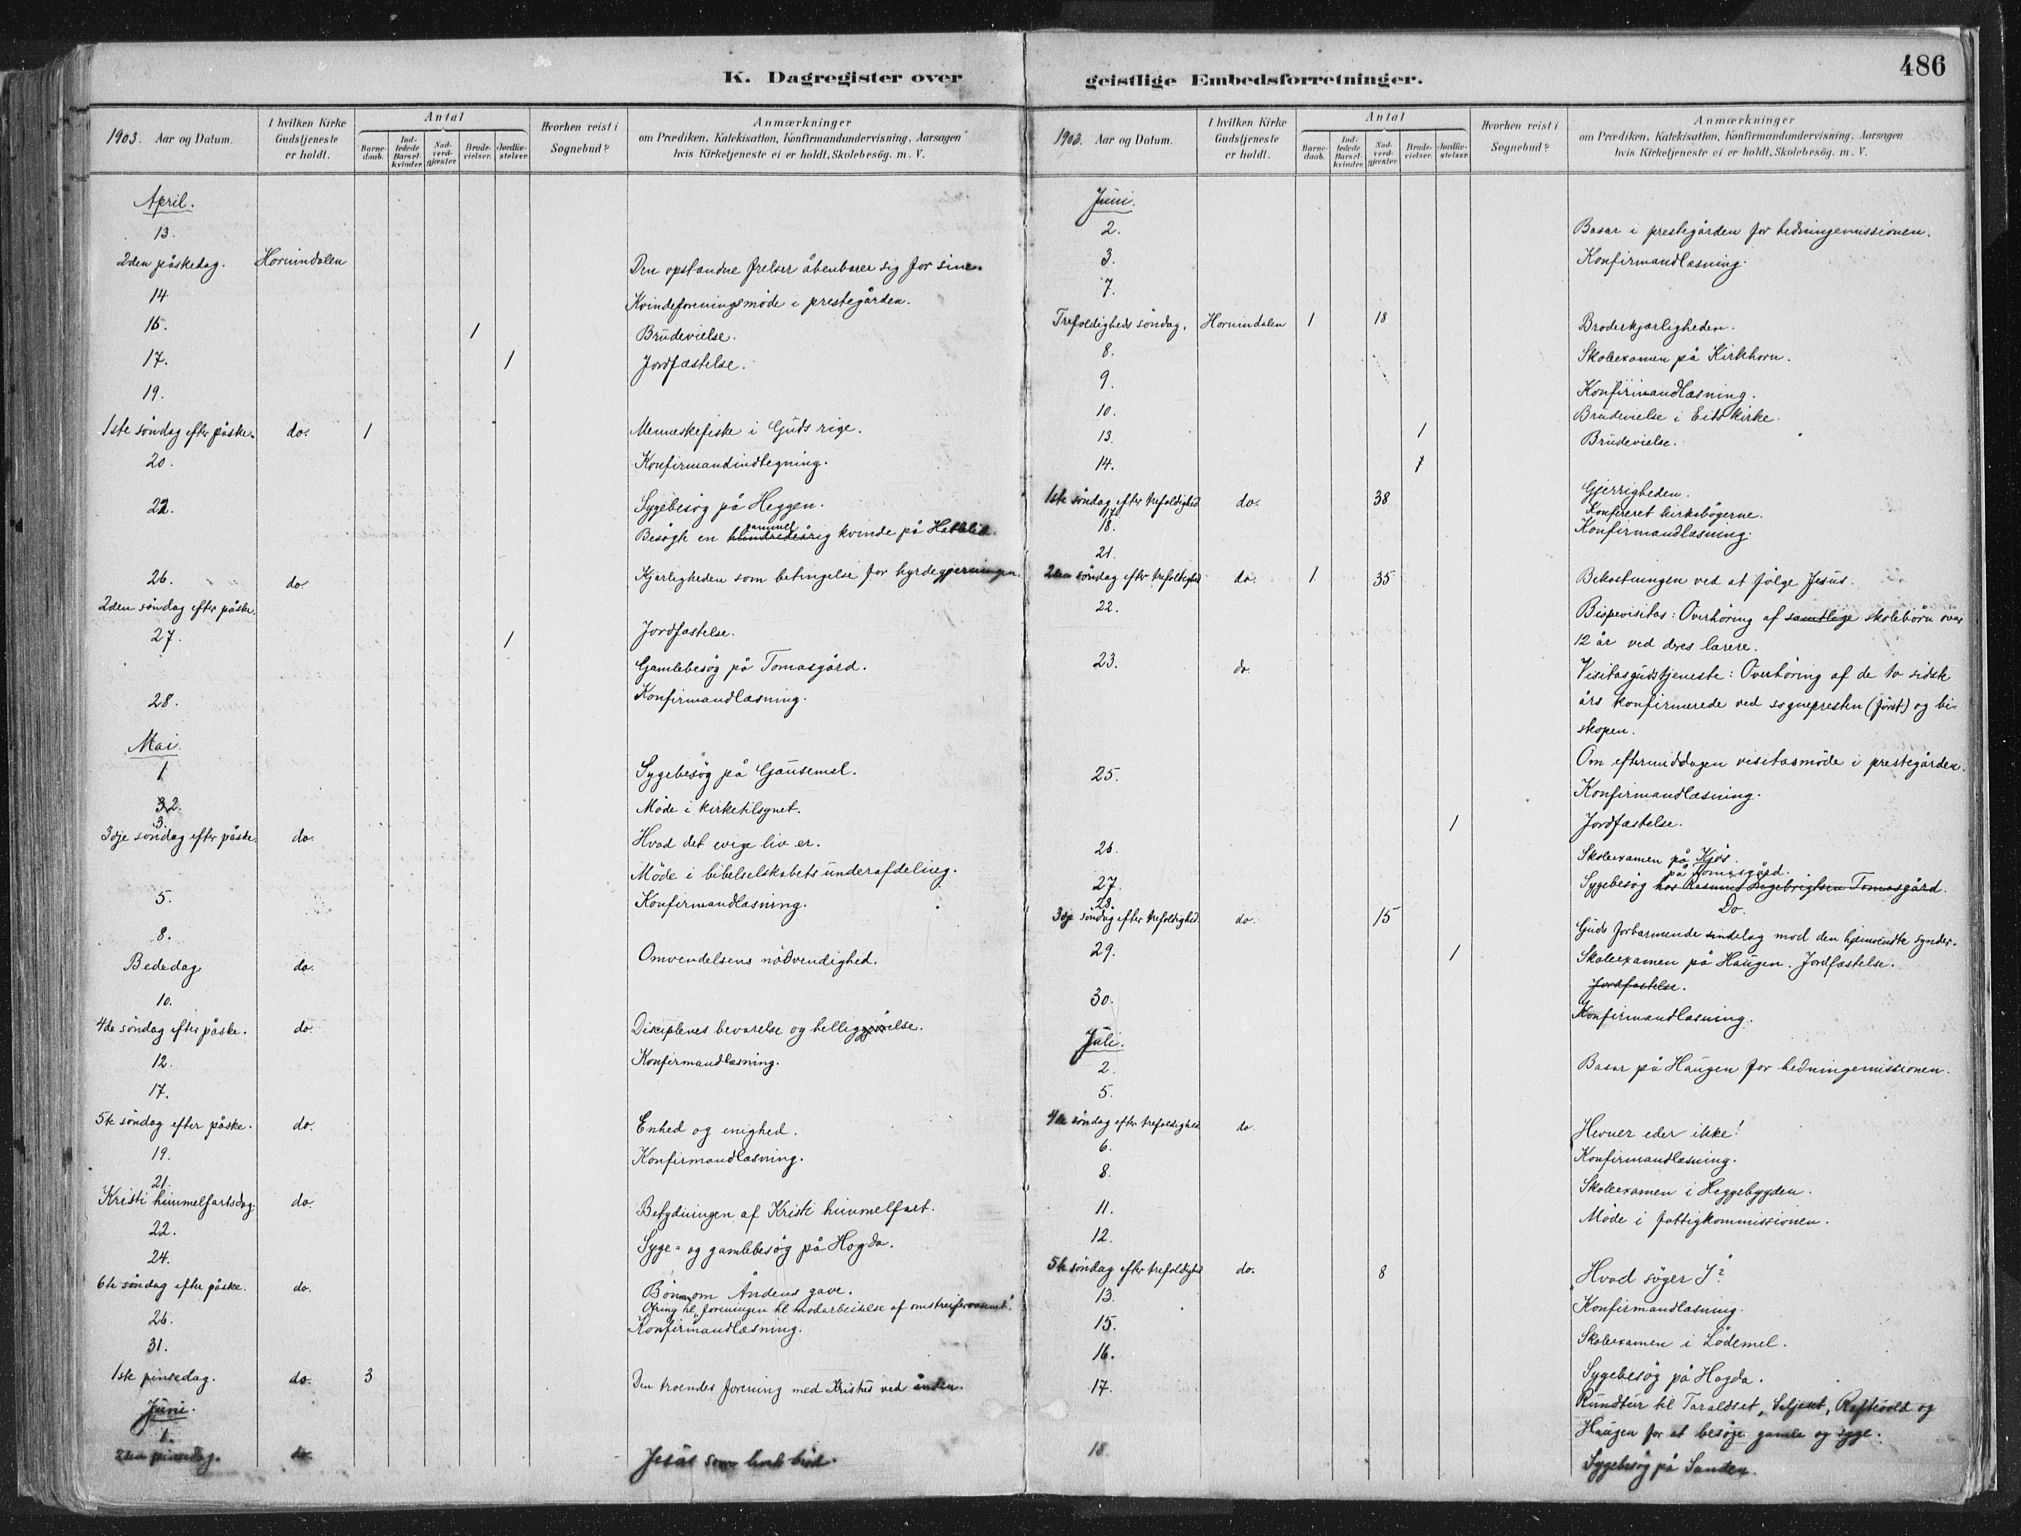 K. Dagregister over
1903. Aar og Datum.
I hvilken Kirke Gudstjeneste er holdt.
Antal
Barnedaab.
Indledede Barselkvinder.
Nadverdgjester
Brudevielser.
Jordfæstelser.
Hvorhen reist i Sognebud?
Anmærkninger
om Prædiken, Katekisation, Konfirmandundervisning, Aarsagen
hvis Kirketjeneste ei er holdt, Skolebesög. m. V.
April.
13.
2den påskedag. Hornindalen Den opstandne frelser åbenbarer sig for sine.
14 Kvindeforeningsmøde i prestegården.
15. 1 Brudevielse.
17. 1 Jordfæstelse.
19.
1ste søndag efter påske. do. 1 Menneskefiske i Guds rige.
20. Konfirmandindtegning.
22. Sygebesøg på Heggen.
gammel
Besøgte en hundredeårig kvinde på
26. do Kjærligheden som betingelse for hyrdegjerningen.
2den søndag efter påske.
27. 1 Jordfæstelse.
Gamlebesøg på Tomasgård.
28. Konfirmandlæsning.
Mai.
1 Sygebesøg på Gausemel.
2. Møde i kirketilsynet.
3.
3dje søndag efter påske. do. Hvad det evige liv er.
Møde i bibelselskabets underafdeling.
5. Konfirmandlæsning.
8.
Bededag do. Omvendelsens nødvendighed.
10.
4de søndag efter påske. do. Disciplenes bevarelse og helliggjørelse.
12. Konfirmandlæsning.
17.
5te søndag efter påske. do. Enhed og enighed.
19. Konfirmandlæsning.
21.
Kristi himmelfartsdag. do. Betydningen af Kristi himmelfart.
22.
24. Syge- og gamlebesøg på Hogda.
6te søndag efter påske. do. Bøn om Åndens gave.
Ofring til "foreningen til modarbeidelse af omstreifervæsenet".
26. Konfirmandlæsning.
31.
1ste pinsedag. do. 3 Den troendes forening med Kristus ved ånden.
Juni.
1.
2den pinsedag. do. Jesus som livets brød.
geistlige Embedsforretninger.
486
1903. Aar og Datum.
I hvilken Kirke Gudstjeneste er holdt.
Antal
Barnedaab.
Indledede Barselkvinder.
Nadverdgjester
Brudevielser.
Jordfæstelser.
Hvorhen reist i Sognebud?
Anmærkninger
om Prædiken, Katekisation, Konfirmandundervisning, Aarsagen
hvis Kirketjeneste ei er holdt, Skolebesög. m. V.
Juni.
2. Basar i prestegården for hedningemissionen.
3. Konfirmandlæsning.
7.
Trefoldigheds søndag. Hornindalen 1 18 Broderkjærligheden.
8. Skoleexamen på Kirkhorn.
9. Konfirmandlæsning.
10. Brudevielse i Eids kirke.
13. 1 Brudevielse.
14. 1
1ste søndag efter trefoldighed do. 38 Gjerrigheden.
17. Konfereret kirkebøgerne.
18. Konfirmandlæsning.
21.
2den søndag efter trefoldighed do. 1 35 Bekostningen ved at følge Jesus.
22. Bispevisitas: Overhøring af samtlige skolebørn over
12 år ved deres lærere.
23. do Visitasgudstjeneste: Overhøring af de to sidste
års konfirmerede ved sognepresten (først) og bi-
skopen.
Om eftermiddagen visitasmøde i prestegården.
25. Konfirmandlæsning.
1 Jordfæstelse.
26. Skoleexamen på Kjøs.
på Tomasgård.
27. Sygebesøg hos Rasmus Ingebrigtsen Tomasgård.
28. Do.
3dje søndag efter trefoldighed do. 15 Guds forbarmende sindelag mod den hjemvendte synder.
29. 1 Skoleexamen på Haugen. Jordfæstelse.
Jordfæstelse.
30. Konfirmandlæsning.
Juli.
2. Basar på Haugen for hedningemissionen.
5.
4de søndag efter trefoldighed do. Hevner eder ikke!
6. Konfirmandlæsning.
8. Skoleexamen i Heggebygden.
11. Møde i fattigkommissionen.
12.
5te søndag efter trefoldighed do. 8 Hvad søger I?
13. Konfirmandlæsning.
15. Skoleexamen i Lødemel.
16. Sygebesøg på Hogda.
17. Rundtur til Taraldset, Seljeset, Raftevold og
Haugen for at besøge gamle og syge.
18. Sygebesøg på Sanden.